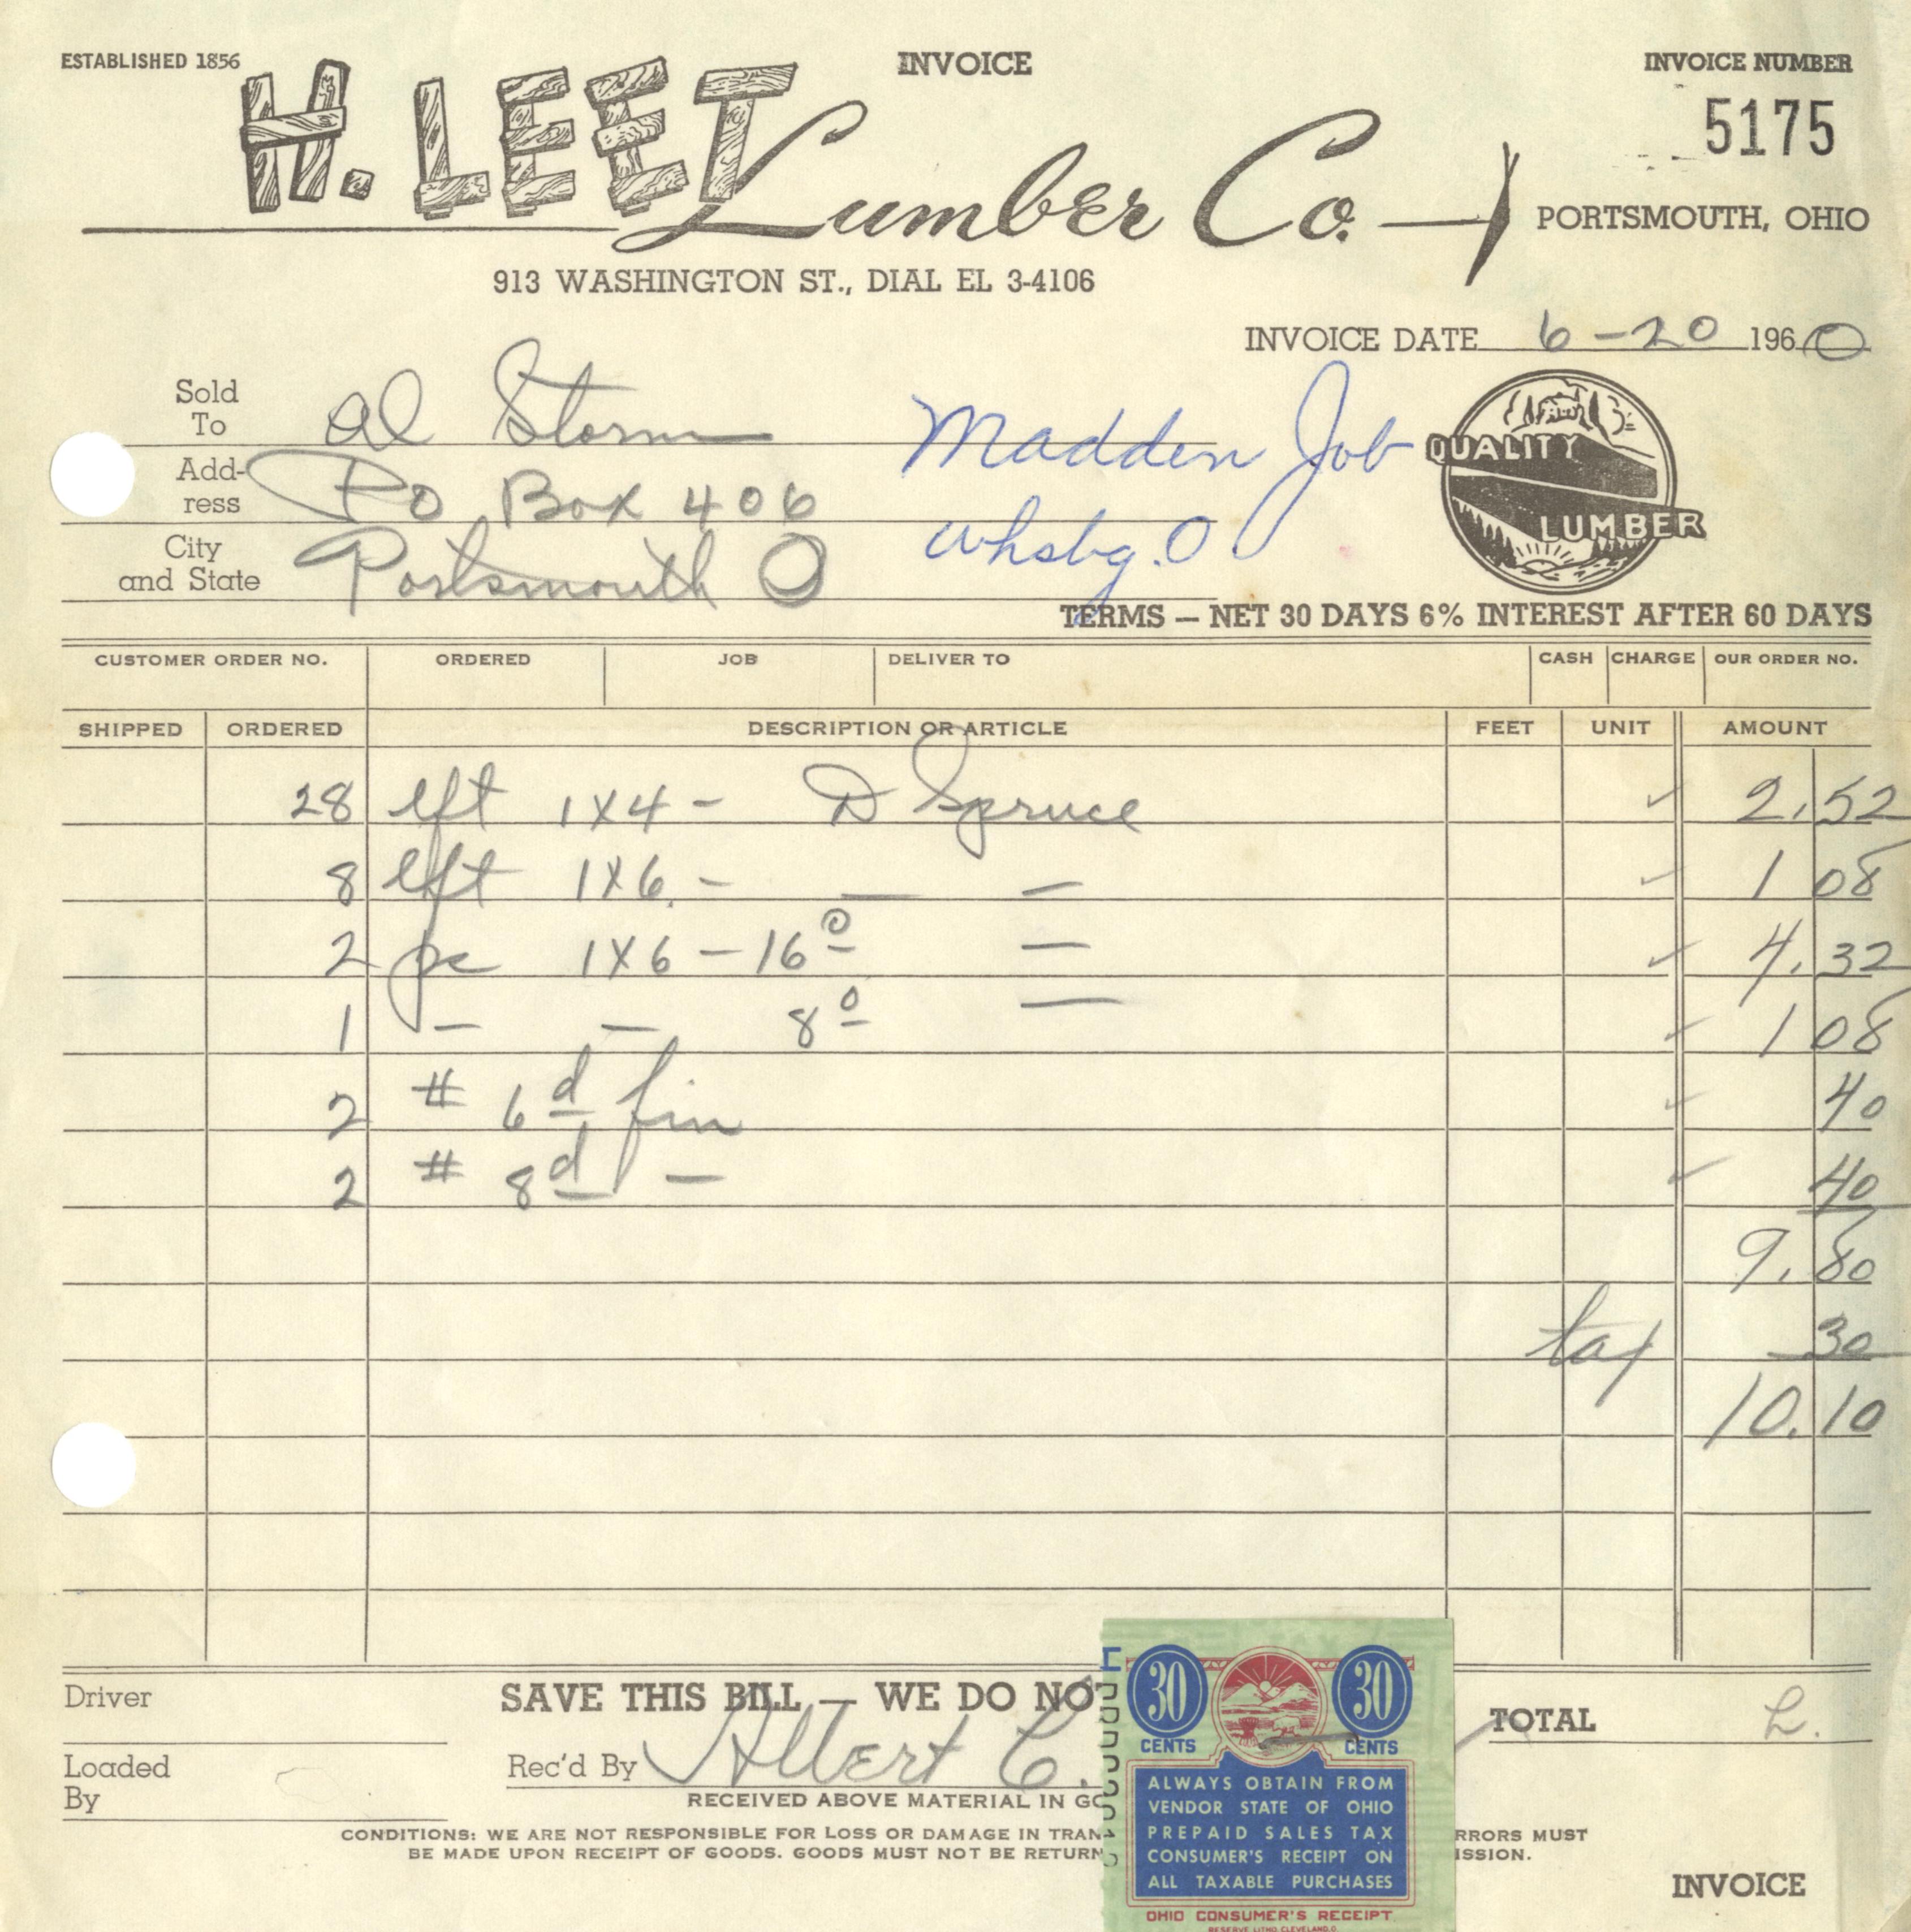 ESTABLISHED 1856
INVOICE
INVOICE NUMBER
H. LEET Lumber Co.
5175
PORTSMOUTH, OHIO
913 WASHINGTON ST., DIAL EL 3-4106
INVOICE DATE 6-20 1960
Sold To Al Storm
Madden Job
Add-ress PO Box 406
whsbg. O
City and State Portsmouth O
QUALITY LUMBER
TERMS — NET 30 DAYS 6% INTEREST AFTER 60 DAYS
CUSTOMER ORDER NO. ORDERED JOB DELIVER TO CASH CHARGE OUR ORDER NO.
SHIPPED ORDERED DESCRIPTION OR ARTICLE FEET UNIT AMOUNT
28 lft 1X4 - D Spruce ✓ 2.52
8 lft 1X6 - — — ✓ 1 08
2 pc 1X6 - 16⁰ — ✓ 4.32
1 — — 8⁰ — ✓ 1 08
2 # 6d fin ✓ 40
2 # 8d — ✓ 40
9.80
tax 30
10.10
Driver
SAVE THIS BILL — WE DO NOT
TOTAL
Loaded By
Rec'd By Albert C.
RECEIVED ABOVE MATERIAL IN GO
CONDITIONS: WE ARE NOT RESPONSIBLE FOR LOSS OR DAMAGE IN TRAN RRORS MUST
BE MADE UPON RECEIPT OF GOODS. GOODS MUST NOT BE RETURN ISSION.
30 CENTS 30 CENTS
ALWAYS OBTAIN FROM
VENDOR STATE OF OHIO
PREPAID SALES TAX
CONSUMER'S RECEIPT ON
ALL TAXABLE PURCHASES
OHIO CONSUMER'S RECEIPT
RESERVE LITHO. CLEVELAND, O.
INVOICE